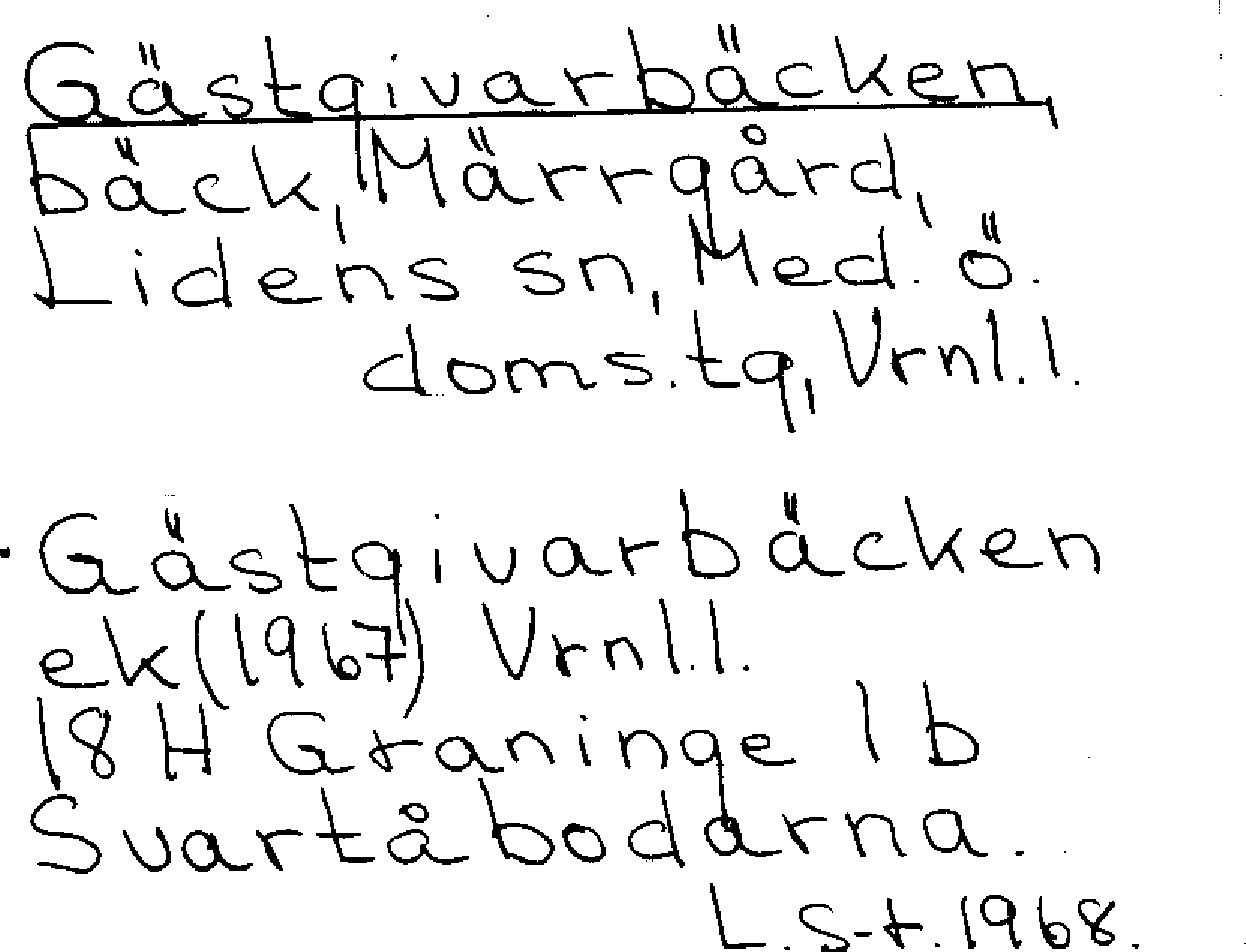 Gästgivarbäcken,
bäck, Märrgård,
Lidens sn, Med. ö.
doms.tg, Vrnl.l.
Gästgivarbäcken
ek (1967) Vrnl.l.
18 H Graninge 1 b
Svartåbodarna.
L.S-t. 1968.